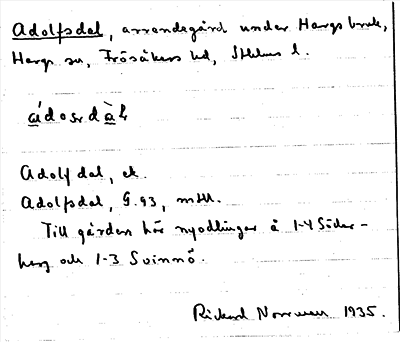 Adolfsdal, arrendegård under Hargs bruk,
Hargs sn, Frösåkers hd, Sthlms l.
Adolfdal, ek.
Adolfsdal, G.93, mtl.
Till gården hör nyodlingar å 1-4 Söder-
berg och 1-3 Svinnö.
Rickard Norrman 1935.